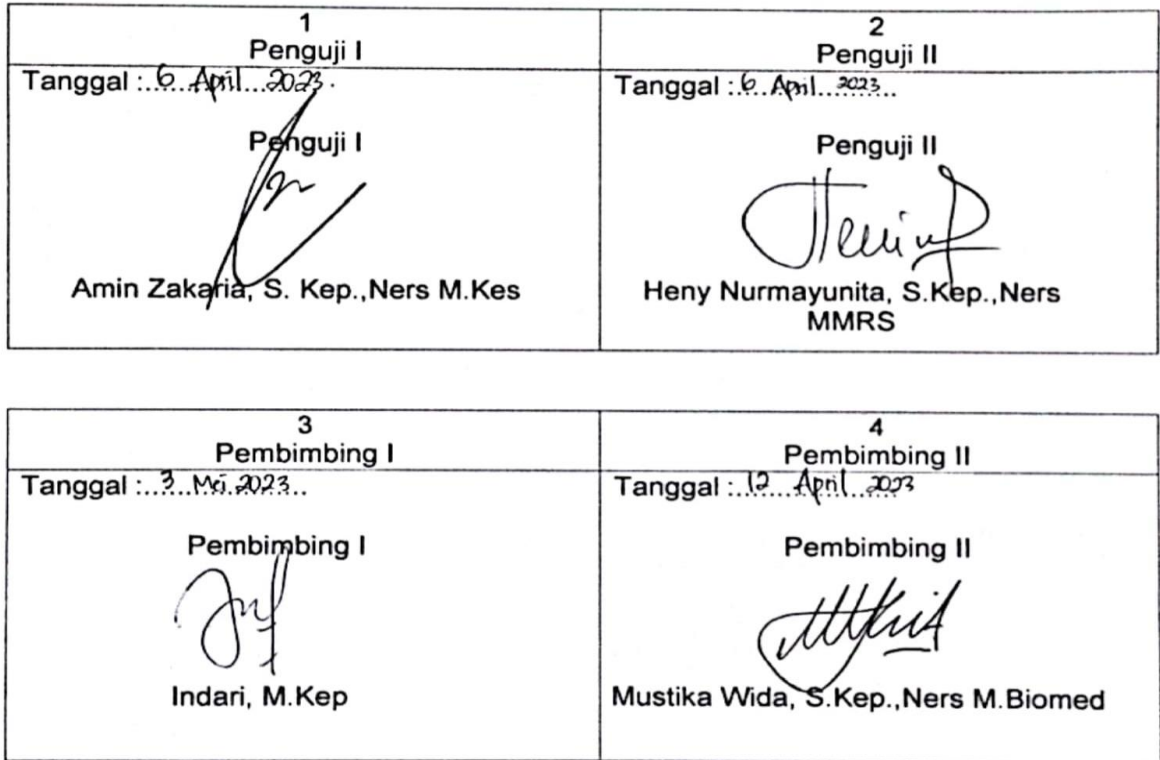 1
Penguji I
Tanggal : 6 April 2023.
Penguji I
Amin Zakaria, S. Kep.,Ners M.Kes
2
Penguji II
Tanggal : 6 April 2023
Penguji II
Heny Nurmayunita, S.Kep.,Ners
MMRS
3
Pembimbing I
Tanggal : 3 Mei 2023
Pembimbing I
Indari, M.Kep
4
Pembimbing II
Tanggal : 12 April 2023
Pembimbing II
Mustika Wida, S.Kep.,Ners M.Biomed